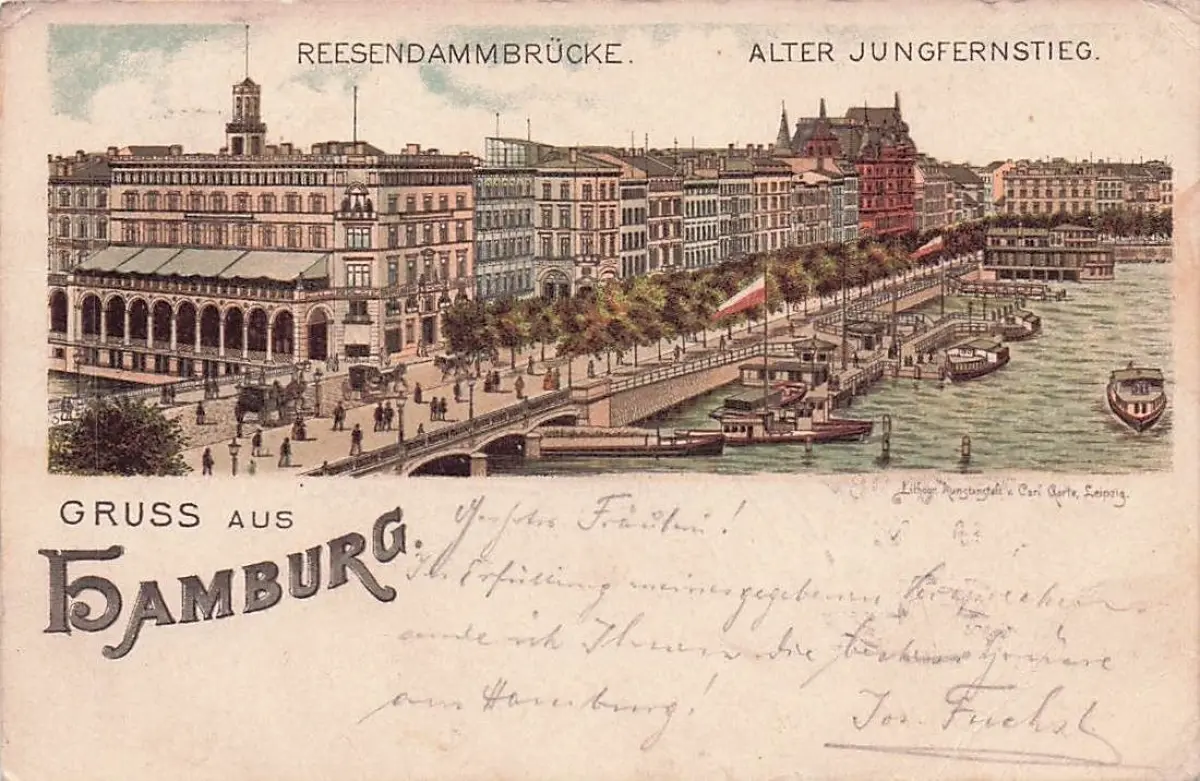 REESENDAMMBRÜCKE. ALTER JUNGFERNSTIEG.
Lithogr. Kunstanstalt v. Carl Garte, Leipzig.
GRUSS AUS
HAMBURG.
Geehrtes Fräulein!
In Erfüllung meines gegebenen Versprechens
sende ich Ihnen die besten Grüsse
aus Hamburg!
Jos. Fuchs